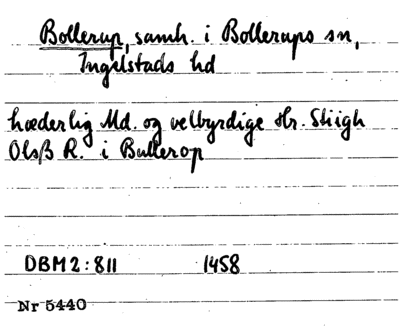 Bollerup, samh. i Bollerups sn,
Ingelstads hd
hæderlig Md. og velbyrdige Hr. Stiigh
Olsß R. i Bullerop
DBM 2:811 1458
Nr 5440